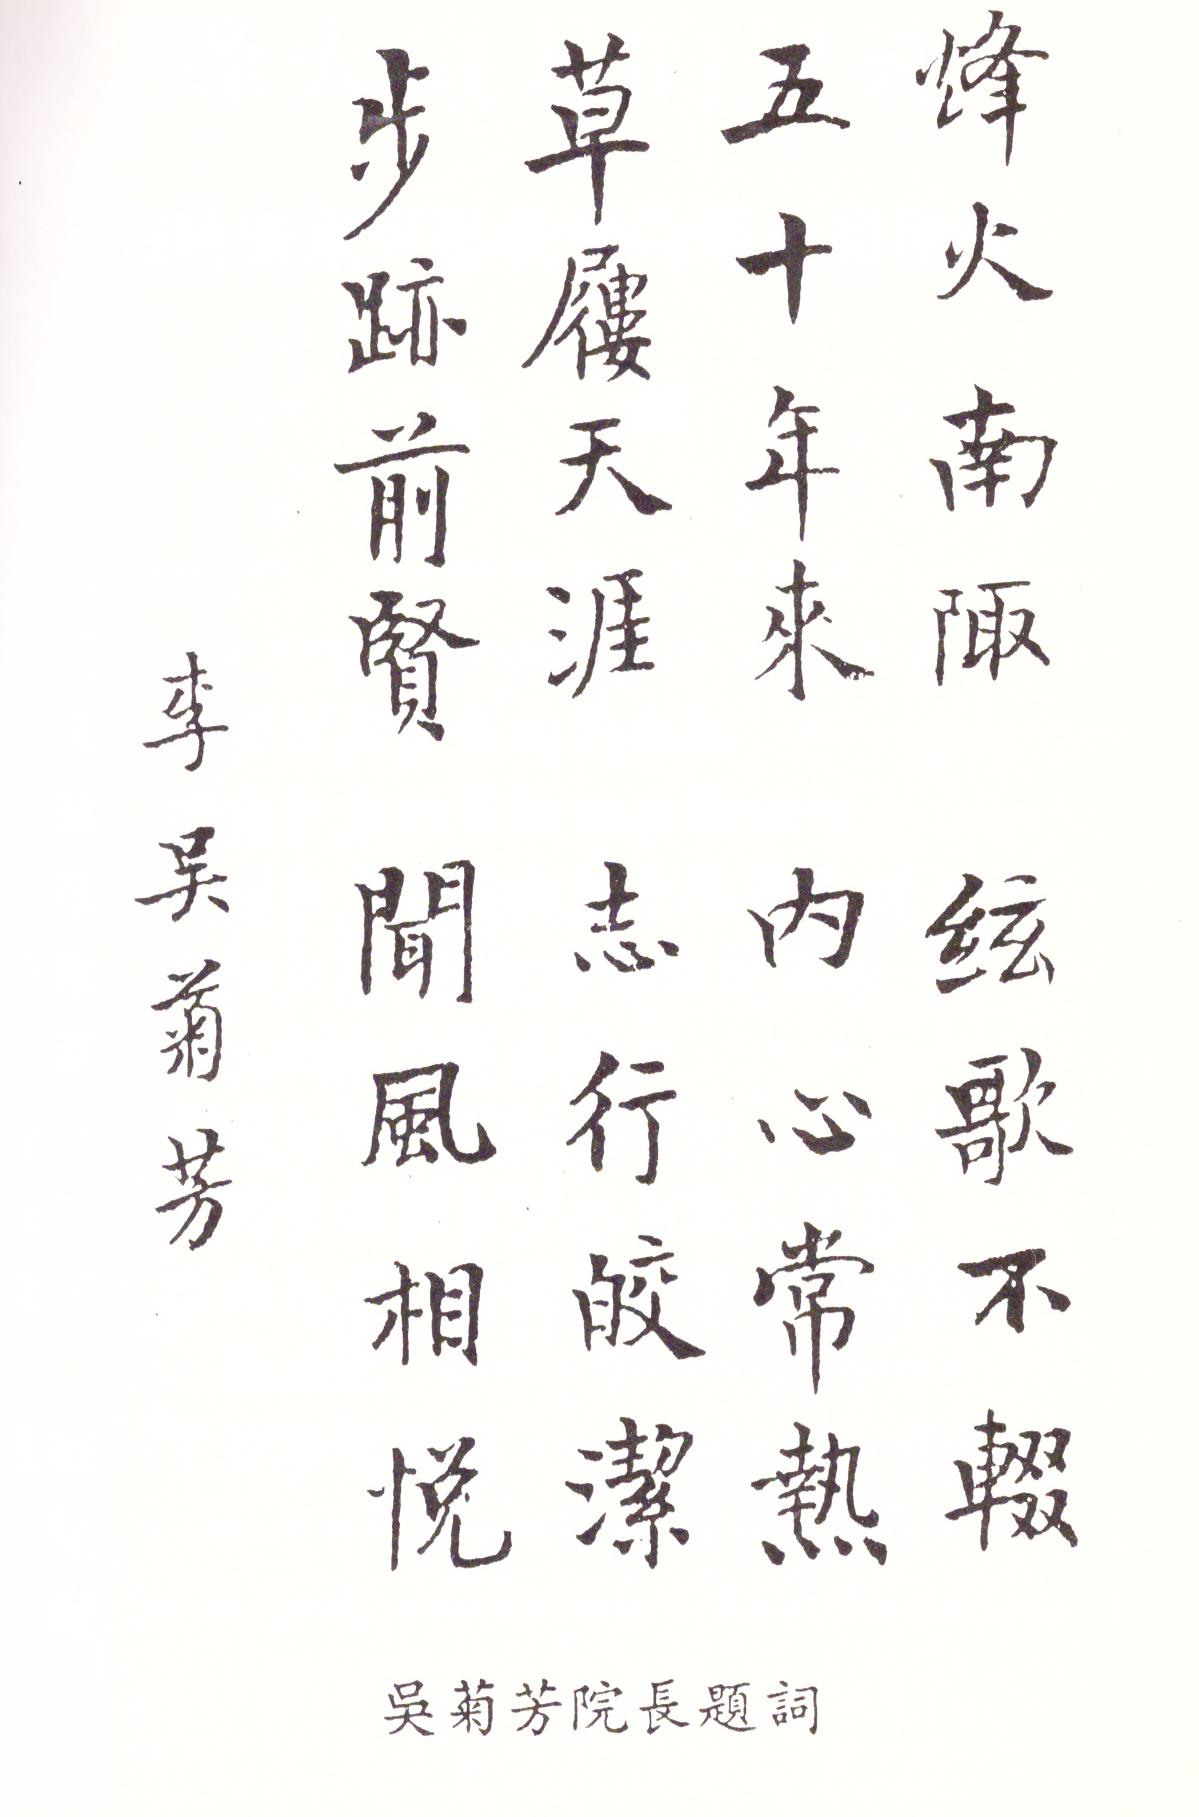 烽火南陬 絃歌不輟
五十年來 內心常熱
草屨天涯 志行皎潔
步跡前賢 聞風相悅
李吳菊芳
吳菊芳院長題詞